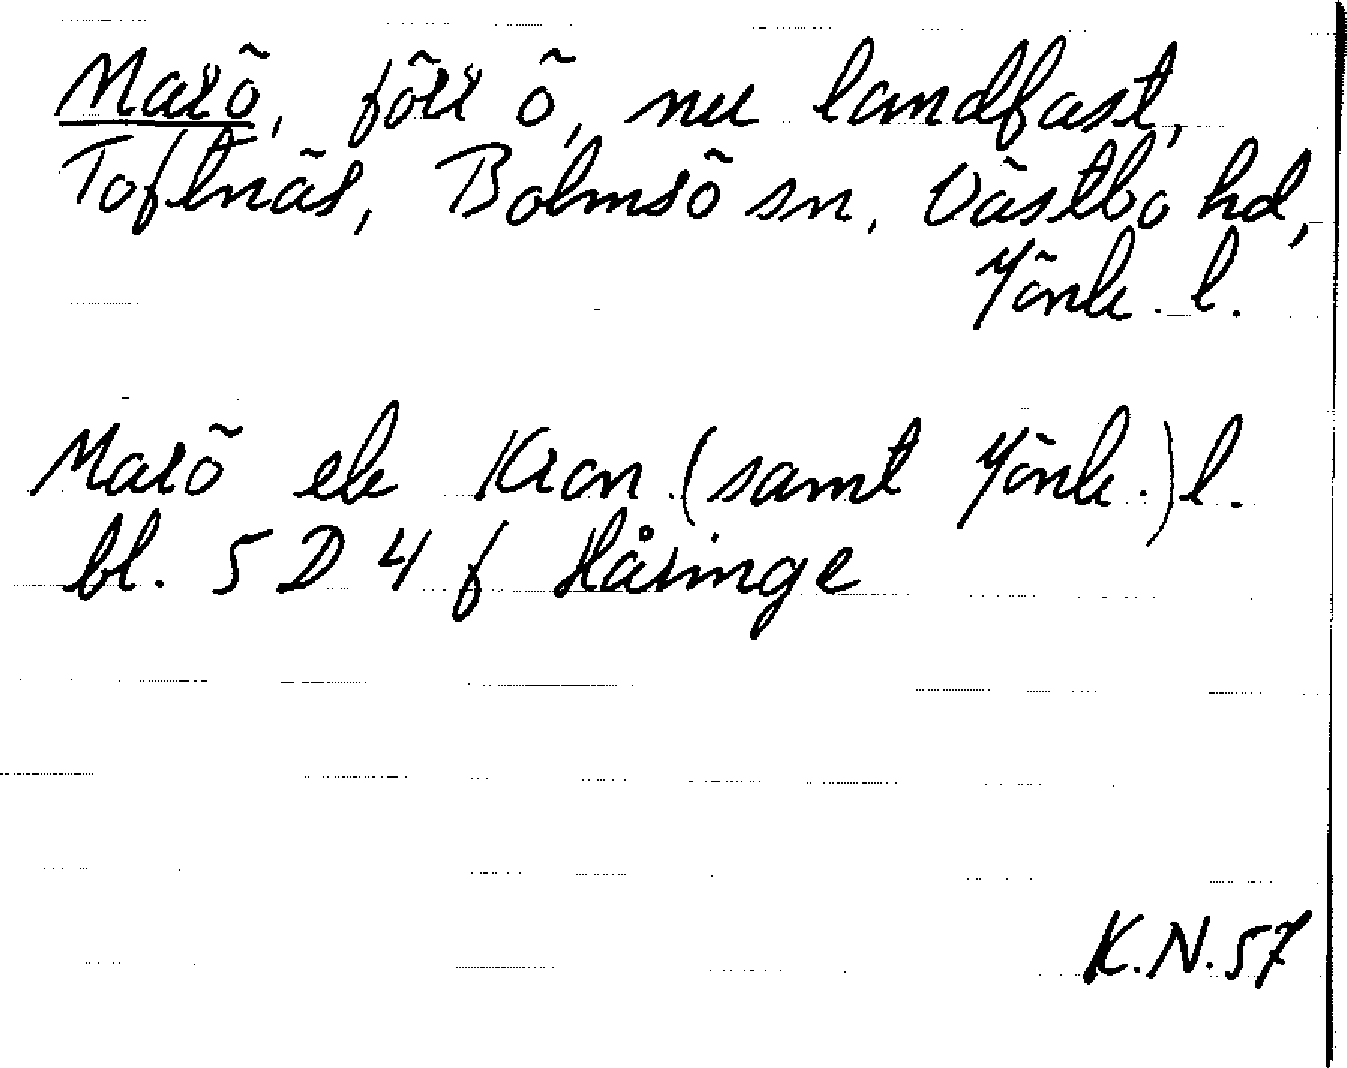 Marö, förr ö, nu landfast,
Toftnäs, Bolmsö sn, Västbo hd,
Jönk. l.
Marö ek Kron. (samt Jönk.) l.
bl. 5 D 4 f Håringe
K.N.57